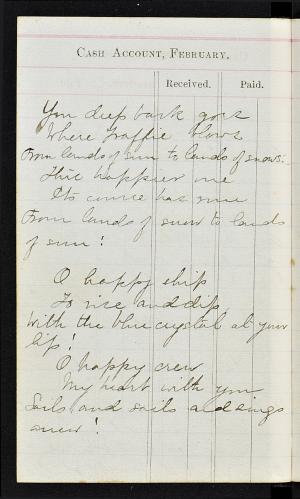 CASH ACCOUNT, FEBRUARY.
Received. Paid.
Yon deep bark goes
Where Traffic blows
From lands of sun to lands of snows:
This happier one
Its course has run
From lands of snow to lands
of sun!
O happy ship
To rise and dip
With the blue crystal at your
lip!
O happy crew
My heart with you
Sails and sails and sings
anew!